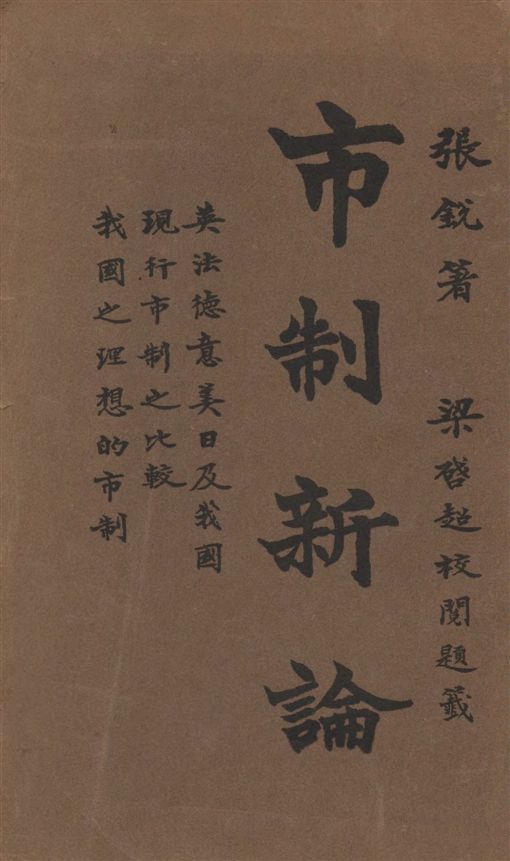 張銳箸　梁啓超校閱題籤
市制新論
英法德意美日及我國
現行市制之比較
我國之理想的市制